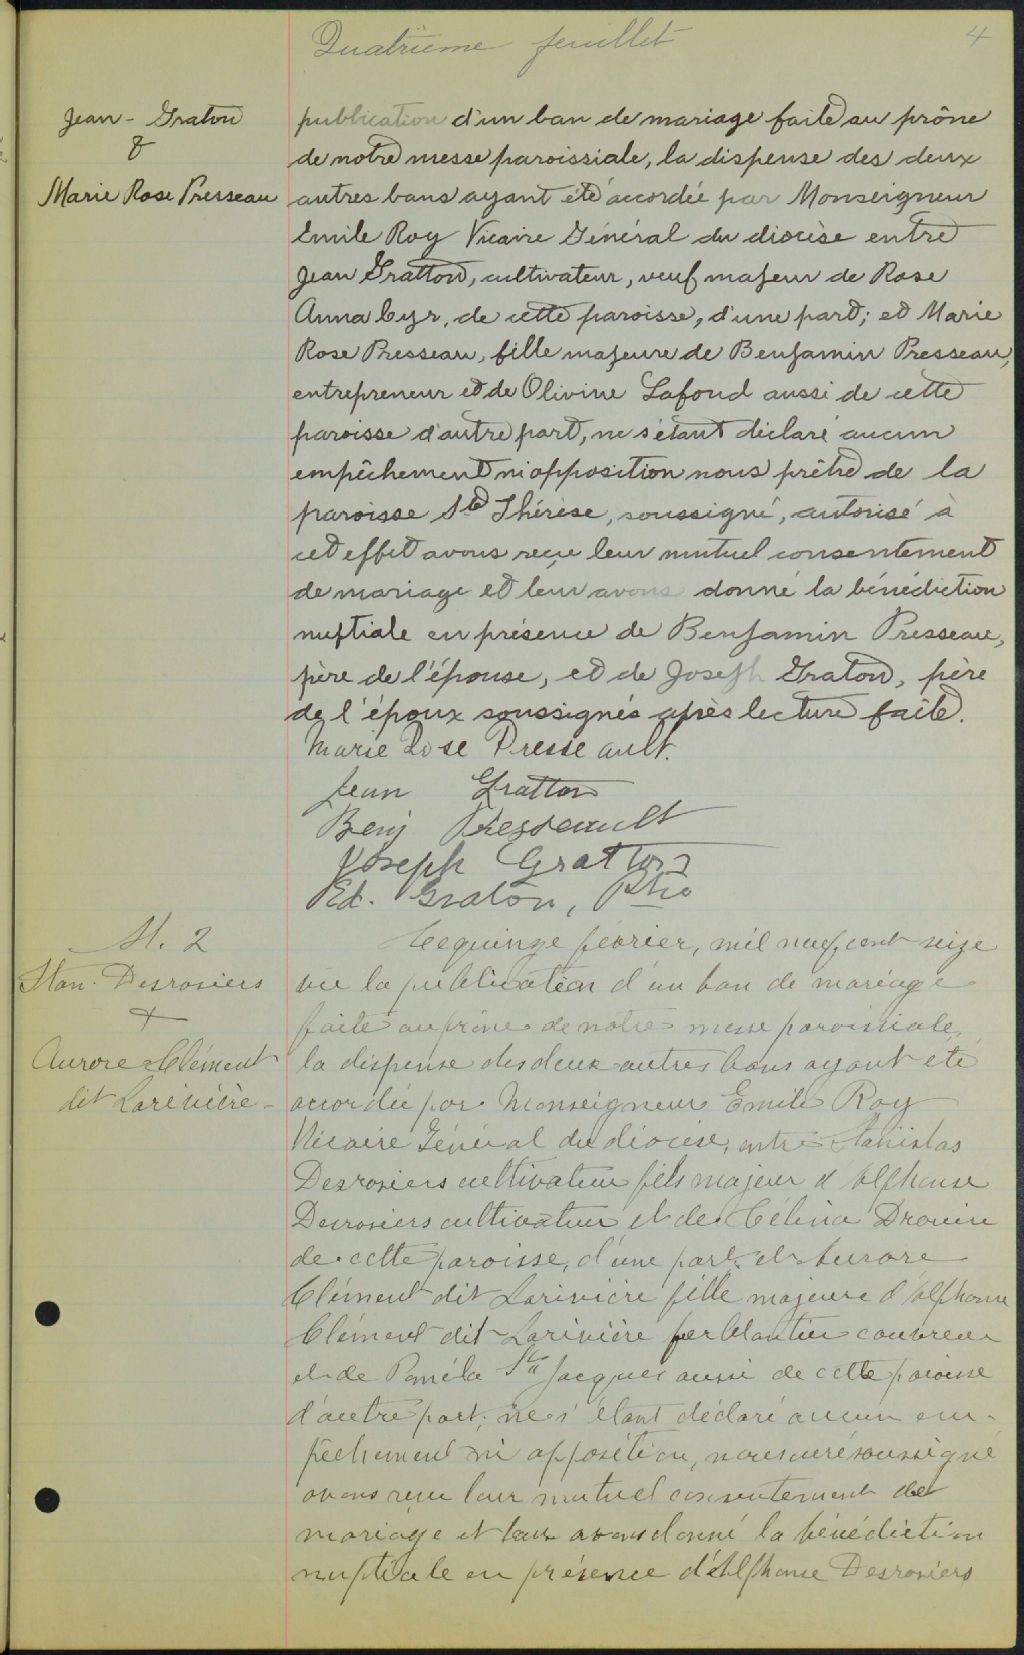 Quatrième feuillet
4
Jean - Graton
&
Marie Rose Presseau
publication d'un ban de mariage faite au prône
de notre messe paroissiale, la dispense des deux
autres bans ayant été accordée par Monseigneur
Emile Roy Vicaire Général du diocèse entre
Jean Gratton, cultivateur, veuf majeur de Rose
Anna Cyr, de cette paroisse, d'une part; et Marie
Rose Presseau, fille majeure de Benjamin Presseau,
entrepreneur et de Olivine Lafond aussi de cette
paroisse d'autre part, ne s'étant déclaré aucun
empêchement ni opposition nous prêtre de la
paroisse Ste Thérèse, soussigné, autorisé à
cet effet avons reçu leur mutuel consentement
de mariage et leur avons donné la bénédiction
nuptiale en présence de Benjamin Presseau,
père de l'épouse, et de Joseph Graton, père
de l'époux soussignés après lecture faite.
Marie Rose Presseault.
Jean Gratton
Benj Presseault
Joseph Gratton
Ed. Graton, Ptre
M. 2
Stan. Desrosiers
+
Aurore Clément
dit Larivière -
Le quinze février, mil neuf cent seize
vu la publication d'un ban de mariage
faite au prône de notre messe paroissiale,
la dispense des deux autres bans ayant été
accordée par Monseigneur Emile Roy
Vicaire Général du diocèse, entre Stanislas
Desrosiers cultivateur fils majeur d'Alphonse
Desrosiers cultivateur et de Célina Drouin
de cette paroisse, d'une part, et Aurore
Clément dit Larivière fille majeure d'Alphonse
Clément dit Larivière ferblantier couvreur
et de Paméla St Jacques aussi de cette paroisse
d'autre part; ne s'étant déclaré aucun em-
pêchement ni opposition, nous curé soussigné
avons reçu leur mutuel consentement de
mariage et leur avons donné la bénédiction
nuptiale en présence d'Alphonse Desrosiers